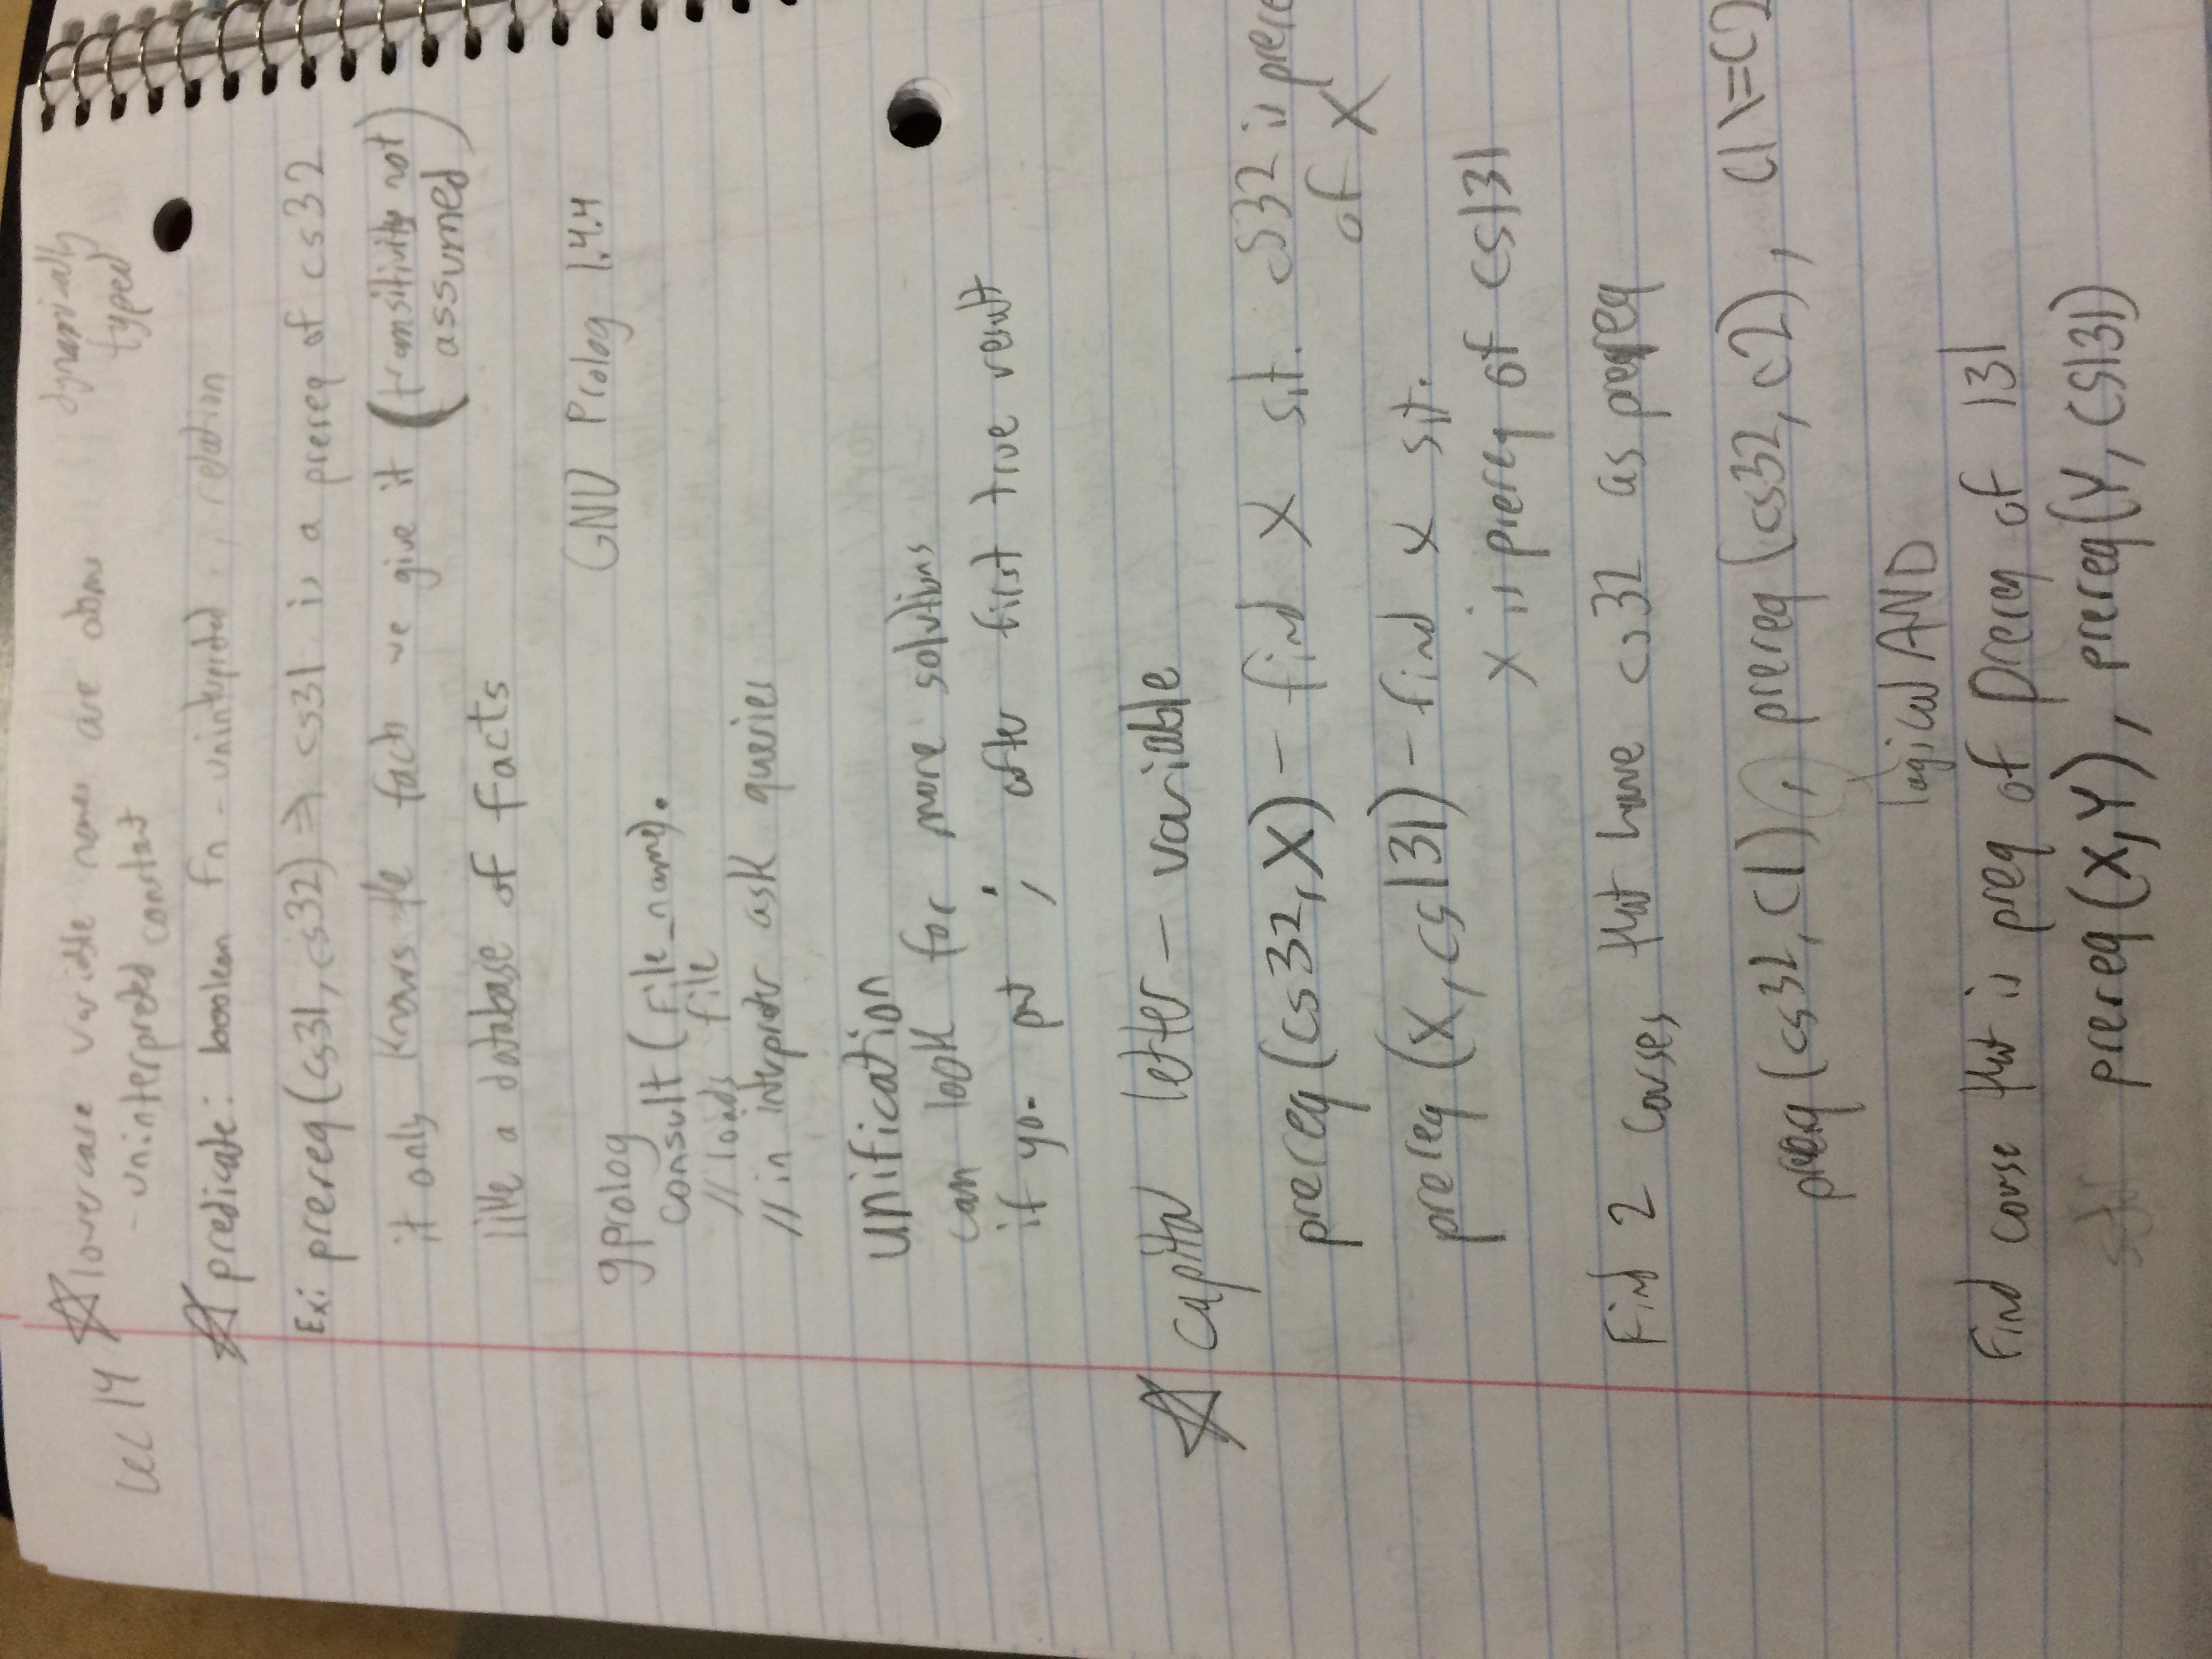 Lec 14
☆ lowercase variable names are atoms
dynamically
typed
- uninterpreted constant
☆ predicate: boolean fn - uninterpreted, relation
Ex: prereq(cs31, cs32) ⇒ cs31 is a prereq of cs32
it only knows the facts we give it (transitivity not
assumed)
like a database of facts
GNU Prolog 1.4.4
gprolog
consult(file_name).
// loads file
// in interpreter ask queries
unification
can look for more solutions
if you put ; after first true result
☆ capital letter - variable
prereq(cs32, X) - find X s.t. cs32 is prere
of X
prereq(X, cs131) - find X s.t.
X is prereq of cs131
Find 2 courses that have cs32 as prereq
prereq(cs32, C1), prereq(cs32, C2), C1 \= C2
logical AND
Find course that is preq of prereq of 131
prereq(X, Y), prereq(Y, CS131)